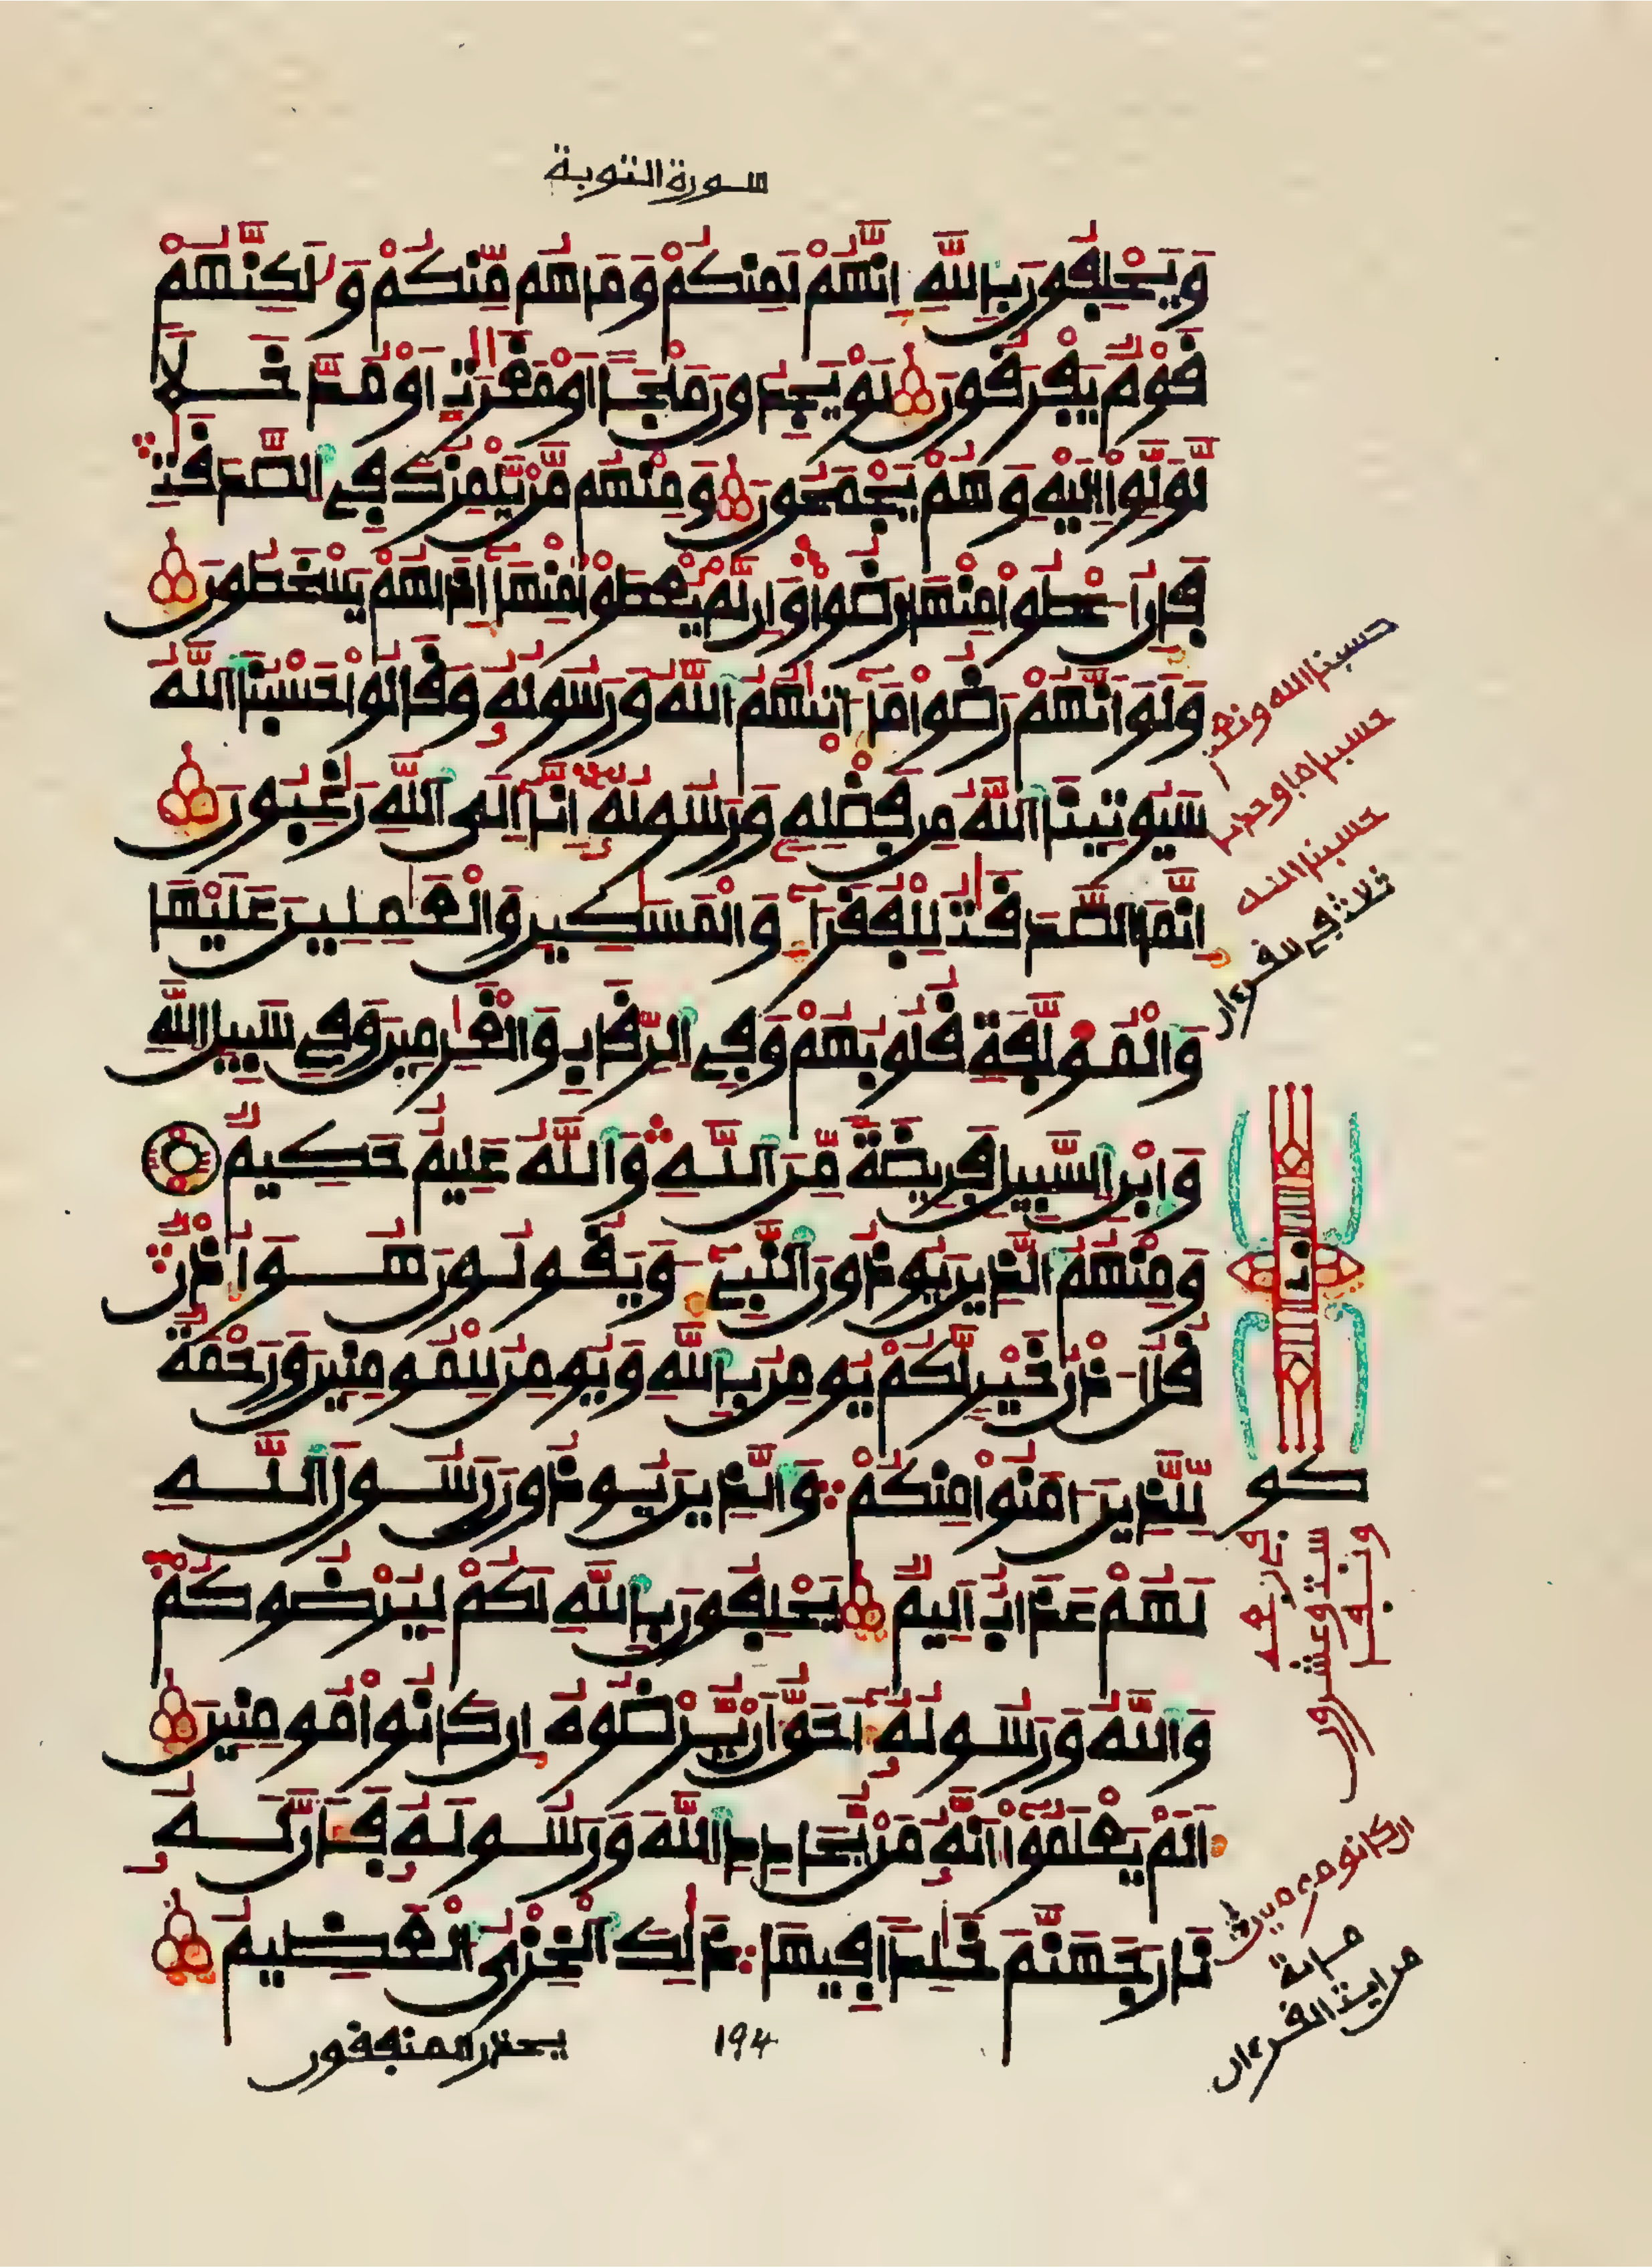 سورة التوبة
وَيَحْلِفُونَ بِاللَّهِ إِنَّهُمْ لَمِنكُمْ وَمَا هُم مِّنكُمْ وَلَٰكِنَّهُمْ
قَوْمٌ يَفْرَقُونَ لَوْ يَجِدُونَ مَلْجَـًٔا أَوْ مَغَٰرَٰتٍ أَوْ مُدَّخَلًا
لَّوَلَّوْا إِلَيْهِ وَهُمْ يَجْمَحُونَ وَمِنْهُم مَّنْ يَّلْمِزُكَ فِي الصَّدَقَٰتِ
فَإِنْ أُعْطُوا مِنْهَا رَضُوا وَإِن لَّمْ يُعْطَوْا مِنْهَا إِذَا هُمْ يَسْخَطُونَ
وَلَوْ أَنَّهُمْ رَضُوا مَا ءَاتَىٰهُمُ اللَّهُ وَرَسُولُهُ وَقَالُوا حَسْبُنَا اللَّهُ
سَيُوتِينَا اللَّهُ مِن فَضْلِهِ وَرَسُولُهُ إِنَّا إِلَى اللَّهِ رَٰغِبُونَ
إِنَّمَا الصَّدَقَٰتُ لِلْفُقَرَآءِ وَالْمَسَٰكِينِ وَالْعَٰمِلِينَ عَلَيْهَا
وَالْمُوَلَّفَةِ قُلُوبُهُمْ وَفِي الرِّقَابِ وَالْغَٰرِمِينَ وَفِي سَبِيلِ اللَّهِ
وَابْنِ السَّبِيلِ فَرِيضَةً مِّنَ اللَّهِ وَاللَّهُ عَلِيمٌ حَكِيمٌ
وَمِنْهُمُ الَّذِينَ يُوذُونَ النَّبِيءَ وَيَقُولُونَ هُوَ أُذْنٌ
قُلْ أُذْنُ خَيْرٍ لَّكُمْ يُومِنُ بِاللَّهِ وَيُومِنُ لِلْمُومِنِينَ وَرَحْمَةٌ
لِّلَّذِينَ ءَامَنُوا مِنكُمْ وَالَّذِينَ يُوذُونَ رَسُولَ اللَّهِ
لَهُمْ عَذَابٌ أَلِيمٌ يَحْلِفُونَ بِاللَّهِ لَكُمْ لِيُرْضُوكُمْ
وَاللَّهُ وَرَسُولُهُ أَحَقُّ أَنْ يُّرْضُوهُ إِن كَانُوا مُومِنِينَ
أَلَمْ يَعْلَمُوا أَنَّهُ مَنْ يُّحَادِدِ اللَّهَ وَرَسُولَهُ فَأَنَّ لَهُ
نَارَ جَهَنَّمَ خَٰلِدًا فِيهَا ذَٰلِكَ الْخِزْيُ الْعَظِيمُ
يحذر المنفقون
194
حسبنا الله ونعم
حسبنا ما وجدنا
حسبنا الله
ثلاث في القرءان
كو
في نزهه
ست وعشرون
ونبم
ان كانوا مومنين
مراية القرءان